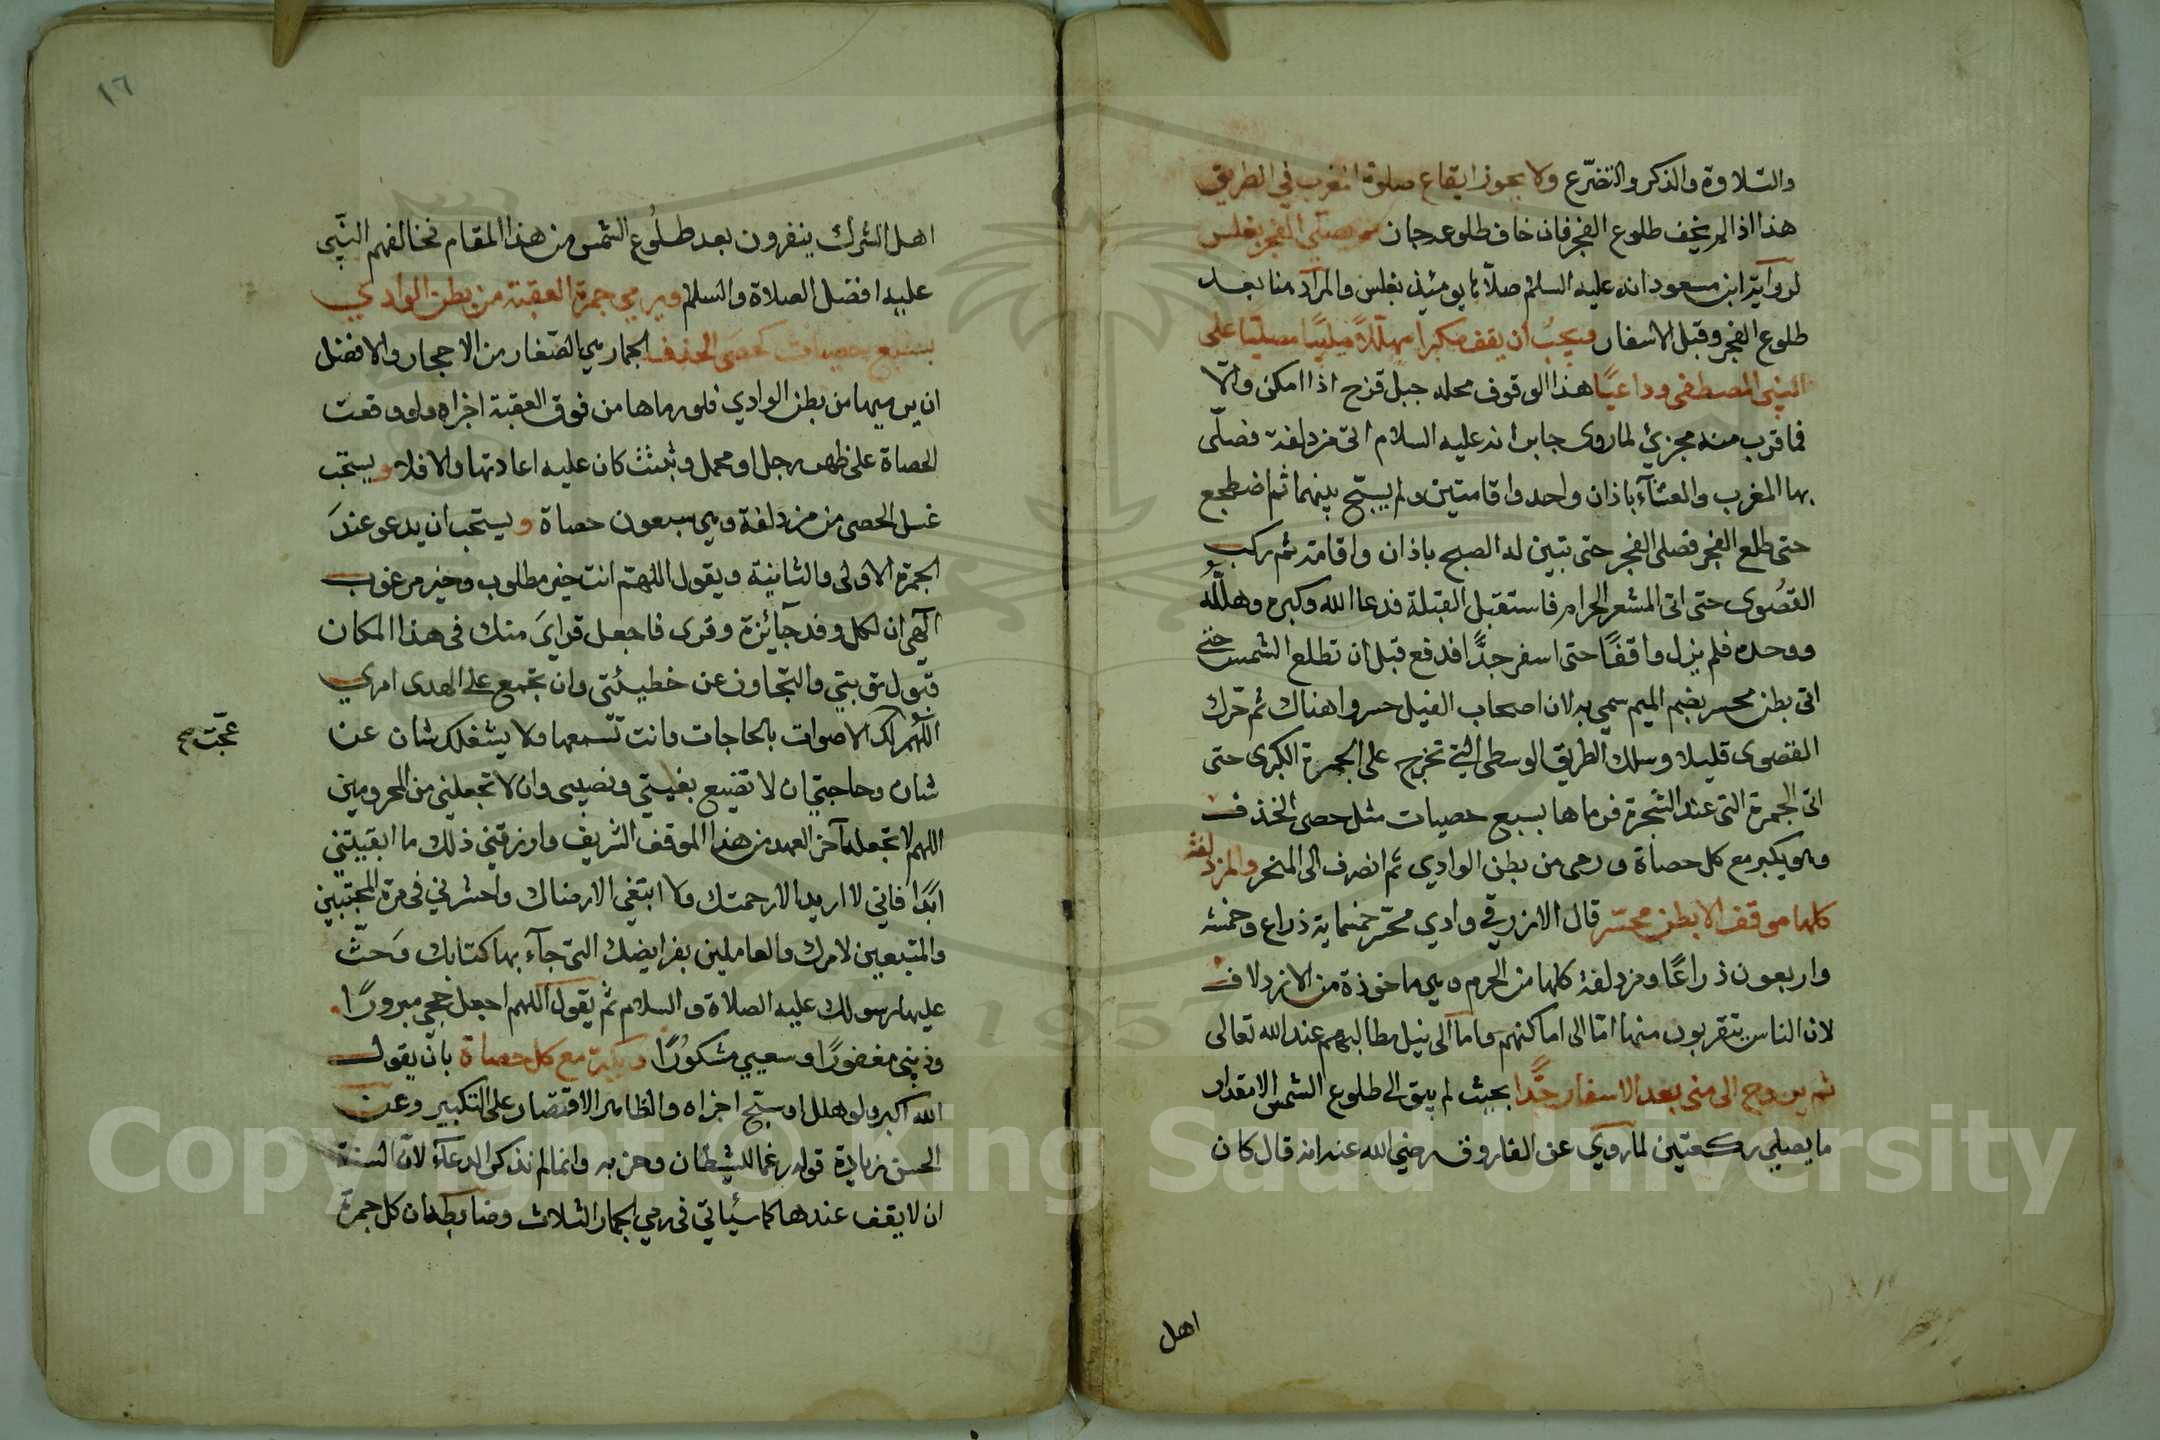 والتلاوة والذكر والتضرّع ولا يجوز ايقاع صلوة المغرب في الطريق
هذا اذا لم يخف طلوع الفجر فان خاف طلوعه جاز ثم يصلي الفجر بغلس
لرواية ابن مسعود انه عليه السلام صلّاها يومئذ بغلس والمراد منا بعد
طلوع الفجر وقبل الاسفار ويجب ان يقف مكبرا مهللا ملبيا مصليا على
النبي المصطفى وداعيًا هذا الوقوف محله جبل قزح اذا امكن والّا
فما قرب منه مجزئ لما روى جابر انه عليه السلام اتى مزدلفة فصلّى
بها المغرب والعشآء باذان واحد واقامتين ولم يسبّح بينهما ثم اضطجع
حتى طلع الفجر فصلى الفجر حتى تبين له الصبح باذان واقامة ثم ركب
القصُوى حتى اتى المشعر الحرام فاستقبل القبلة فدعا الله وكبره وهلّله
ووحده فلم يزل واقفًا حتى اسفر جدًّا فدفع قبل ان تطلع الشمس حتى
اتى بطن محسر بضم الميم سمي به لان اصحاب الفيل حسروا هناك ثم حرك
القصوى قليلا وسلك الطريق الوسطى التي تخرج على الجمرة الكبرى حتى
اتى الجمرة التي عند الشجرة فرماها بسبع حصيات مثل حصى الخذف
وهو يكبر مع كل حصاة ورمى من بطن الوادي ثم انصرف الى المنحر والمزدلفة
كلها موقف الا بطن محسّر قال الازرقي وادي محسّر خمسماية ذراع وخمسة
واربعون ذراعًا ومزدلفة كلها من الحرم وهي ماخوذة من الازدلاف
لان الناس يتقربون منها امّا الى اماكنهم واما الى نيل مطالبهم عند الله تعالى
ثم يروح الى منى بعد الاسفار جدًّا بحيث لم يبق الى طلوع الشمس الا مقدار
ما يصلي ركعتين لما روي عن الفاروق رضي الله عنه انه قال كان
اهل
١٦
اهل الشرك ينفرون بعد طلُوع الشمس من هذا المقام فخالفهم النبّي
عليه افضل الصلاة والسلام ويرمي جمرة العقبة من بطن الوادي
بسبع حصيات كحصى الخذف الجمار هي الصغار من الاحجار والافضل
ان يرميها من بطن الوادي فلو رماها من فوق العقبة اجزاه ولو وقعت
الحصاة على ظهر رجل او محمل وثبتت كان عليه اعادتها والا فلا ويستحب
غسل الحصى من مزدلفة وهي سبعون حصاة ويستحب ان يدعو عند
الجمرة الاولى والثانية ويقول اللهم انت خير مطلوب وخير مرغوب
الهي ان لكل وفد جآئزة وقرى فاجعل قرايَ منك في هذا المكان
قبول توبتي والتجاوز عن خطيئتي وان تجمع على الهدى امري
اللهم لك الاصوات بالحاجات وانت تسمعها ولا يشغلك شان عن
عجّت صح
شان وحاجتي ان لا تضيع بغيتي ونصيبي وان لا تجعلني من المحرومين
اللهم لا تجعله آخر العهد من هذا الموقف الشريف وارزقني ذلك ما ابقيتني
ابدًا فاني لا اريد الا رحمتك ولا ابتغي الا رضاك واحشرني في زمرة المخبتين
والمتبعين لامرك والعاملين بفرايضك التي جآء بها كتابك وَحثّ
عليها رسولك عليه الصلاة والسلام ثم يقول اللهم اجعل حجي مبرورًا
وذنبي مغفورًا وسعيي مشكورًا ويكبر مع كل حصاة بان يقول
الله اكبر ولو هلل او سبّح اجزاه والظاهر الاقتصار على التكبير وعن
الحسن زيادة قوله رغما للشيطان وحزبه وانما لم نذكر الدعآء لان السنة
ان لا يقف عندها كما سيأتي في رمي الجمار الثلاث وضابطه ان كل جمرة
Copyright © King Saud University
1957